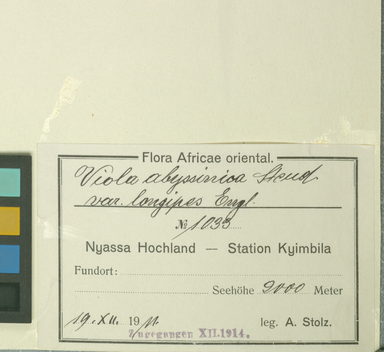 Flora Africae oriental.
Viola abyssinica Steud
var. longipes Engl.
№ 1035
Nyassa Hochland — Station Kyimbila
Fundort:
Seehöhe 2000 Meter
19. XII. 1911 leg. A. Stolz.
Zugegangen XII.1914.